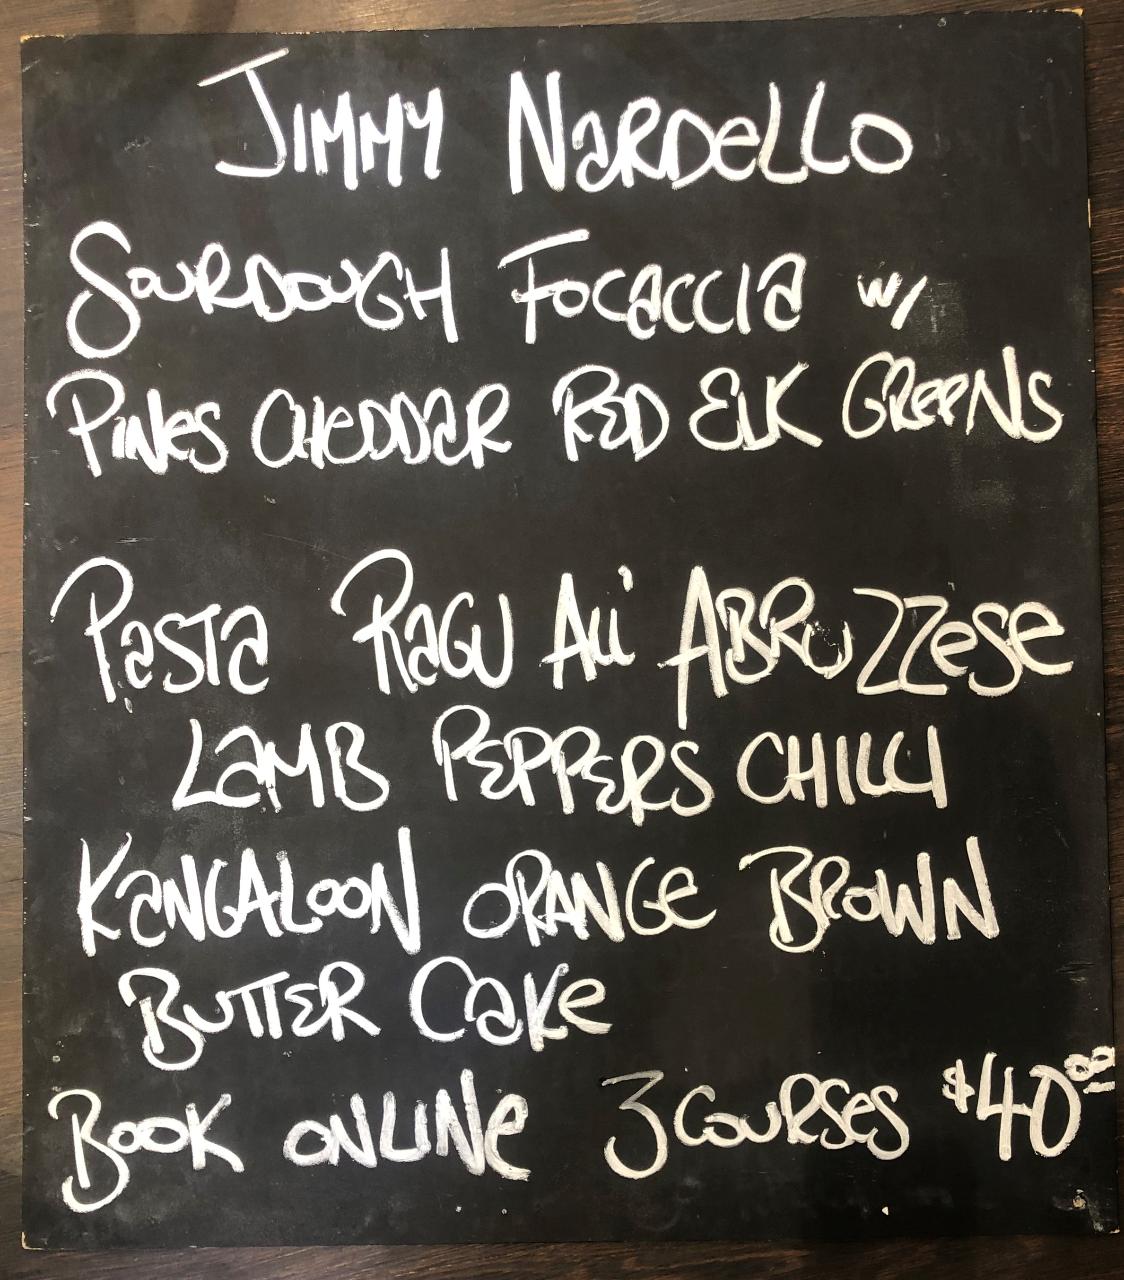 JIMMY NARDELLO
SOURDOUGH FOCACCIA w/
PINES CHEDDAR RED ELK GREENS
PASTA RAGU All' ABRUZZESE
LAMB PEPPERS CHILLI
KANGALOON ORANGE BROWN
BUTTER CAKE
BOOK ONLINE 3 COURSES $40.00